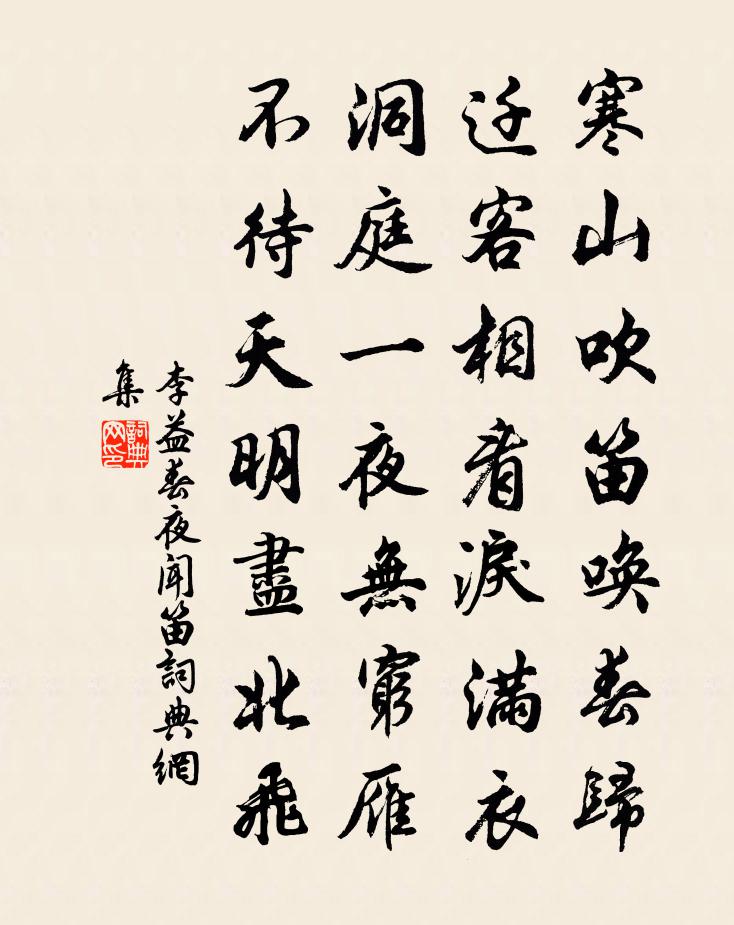 寒山吹笛唤春歸
迁客相看淚满衣
洞庭一夜無窮雁
不待天明盡北飛
李益春夜闻笛詞典網
集
詞典
网印